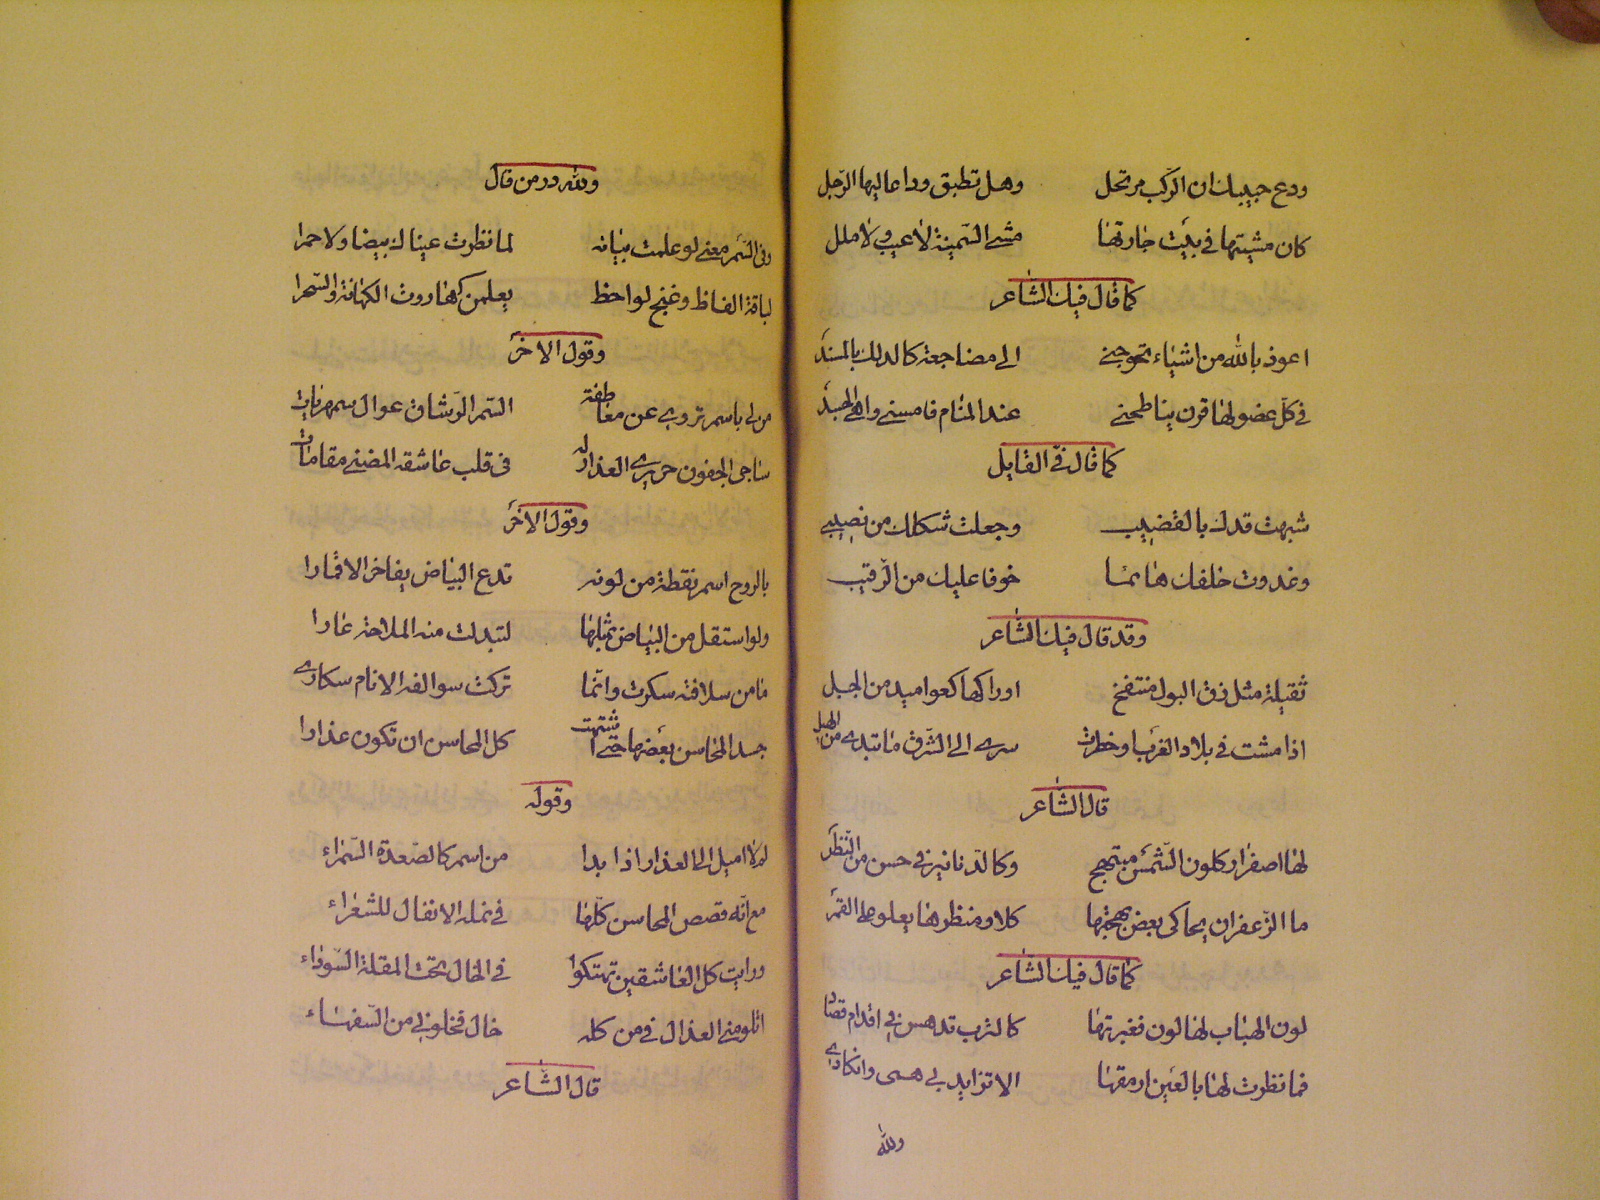 ودع حبيبك ان الركب مرتحل وهل تطيق وداعا ايها الرجل
كان مشيتها في بيت جارتها مشي السمينة لا عيب ولا ملل
كما قال فيك الشاعر
اعوذ بالله من اشياء تحوجني الى مضاجعة كالدلك بالمسد
في كل عضو لها قرن يناطحني عند المنام فامسي واهي الجسد
كما قال في القايل
شبهت قدك بالقضيب وجعلت شكلك من نصيبي
وغدوت خلفك هائما خوفا عليك من الرقيب
وقد قال فيك الشاعر
ثقيلة مثل زق البول منتفخ اوراكها كعواميد من الجبل
اذا مشت في بلاد الغرب او خطرت سرى الى الشرق ما تبدى من الهبل
قال الشاعر
لها اصفرار كلون الشمس مبتهج وكالدنانير في حسن من النظر
ما الزعفران يحاكي بعض بهجتها كلا ومنظرها يعلو على القمر
كما قال فيك الشاعر
لون الهباب لها لون فغبرتها كالترب قد هس في اقدام قصاد
فما نظرت لها بالعين ارمقها الا تزايد بي همي وانكادي
ولله
ولله در من قال
وفي السمر معنى لو علمت بيانه لما نظرت عيناك بيضا ولا حمرا
لباقة الفاظ وغنج لواحظ يعلمن هاروت الكهانة والسحرا
وقول الاخر
من لي باسمر تروي عن معاطفه السمر الرشاق عوال سمهريات
ساجي الجفون حريري العذار له في قلب عاشقه المضنى مقامات
وقول الاخر
بالروح اسمر نقطة من لونه تدع البياض يفاخر الاقمارا
ولو استقل من البياض بمثلها لتبدلت منه الملاحة عارا
ما من سلافته سكرت وانما تركت سوالفه الانام سكارى
حسد المحاسن بعضها حتى اشتهت كل المحاسن ان تكون عذارا
وقوله
لم لا اميل الى العذار اذا بدا من اسمر كالصعدة السمراء
مع انه قصص المحاسن كلها في نمله الانفال للشعراء
ورايت كل العاشقين تهتكوا في الخال تحت المقلة السوداء
اتلومني العذال في من كله خال فخلوني من السفهاء
قال الشاعر